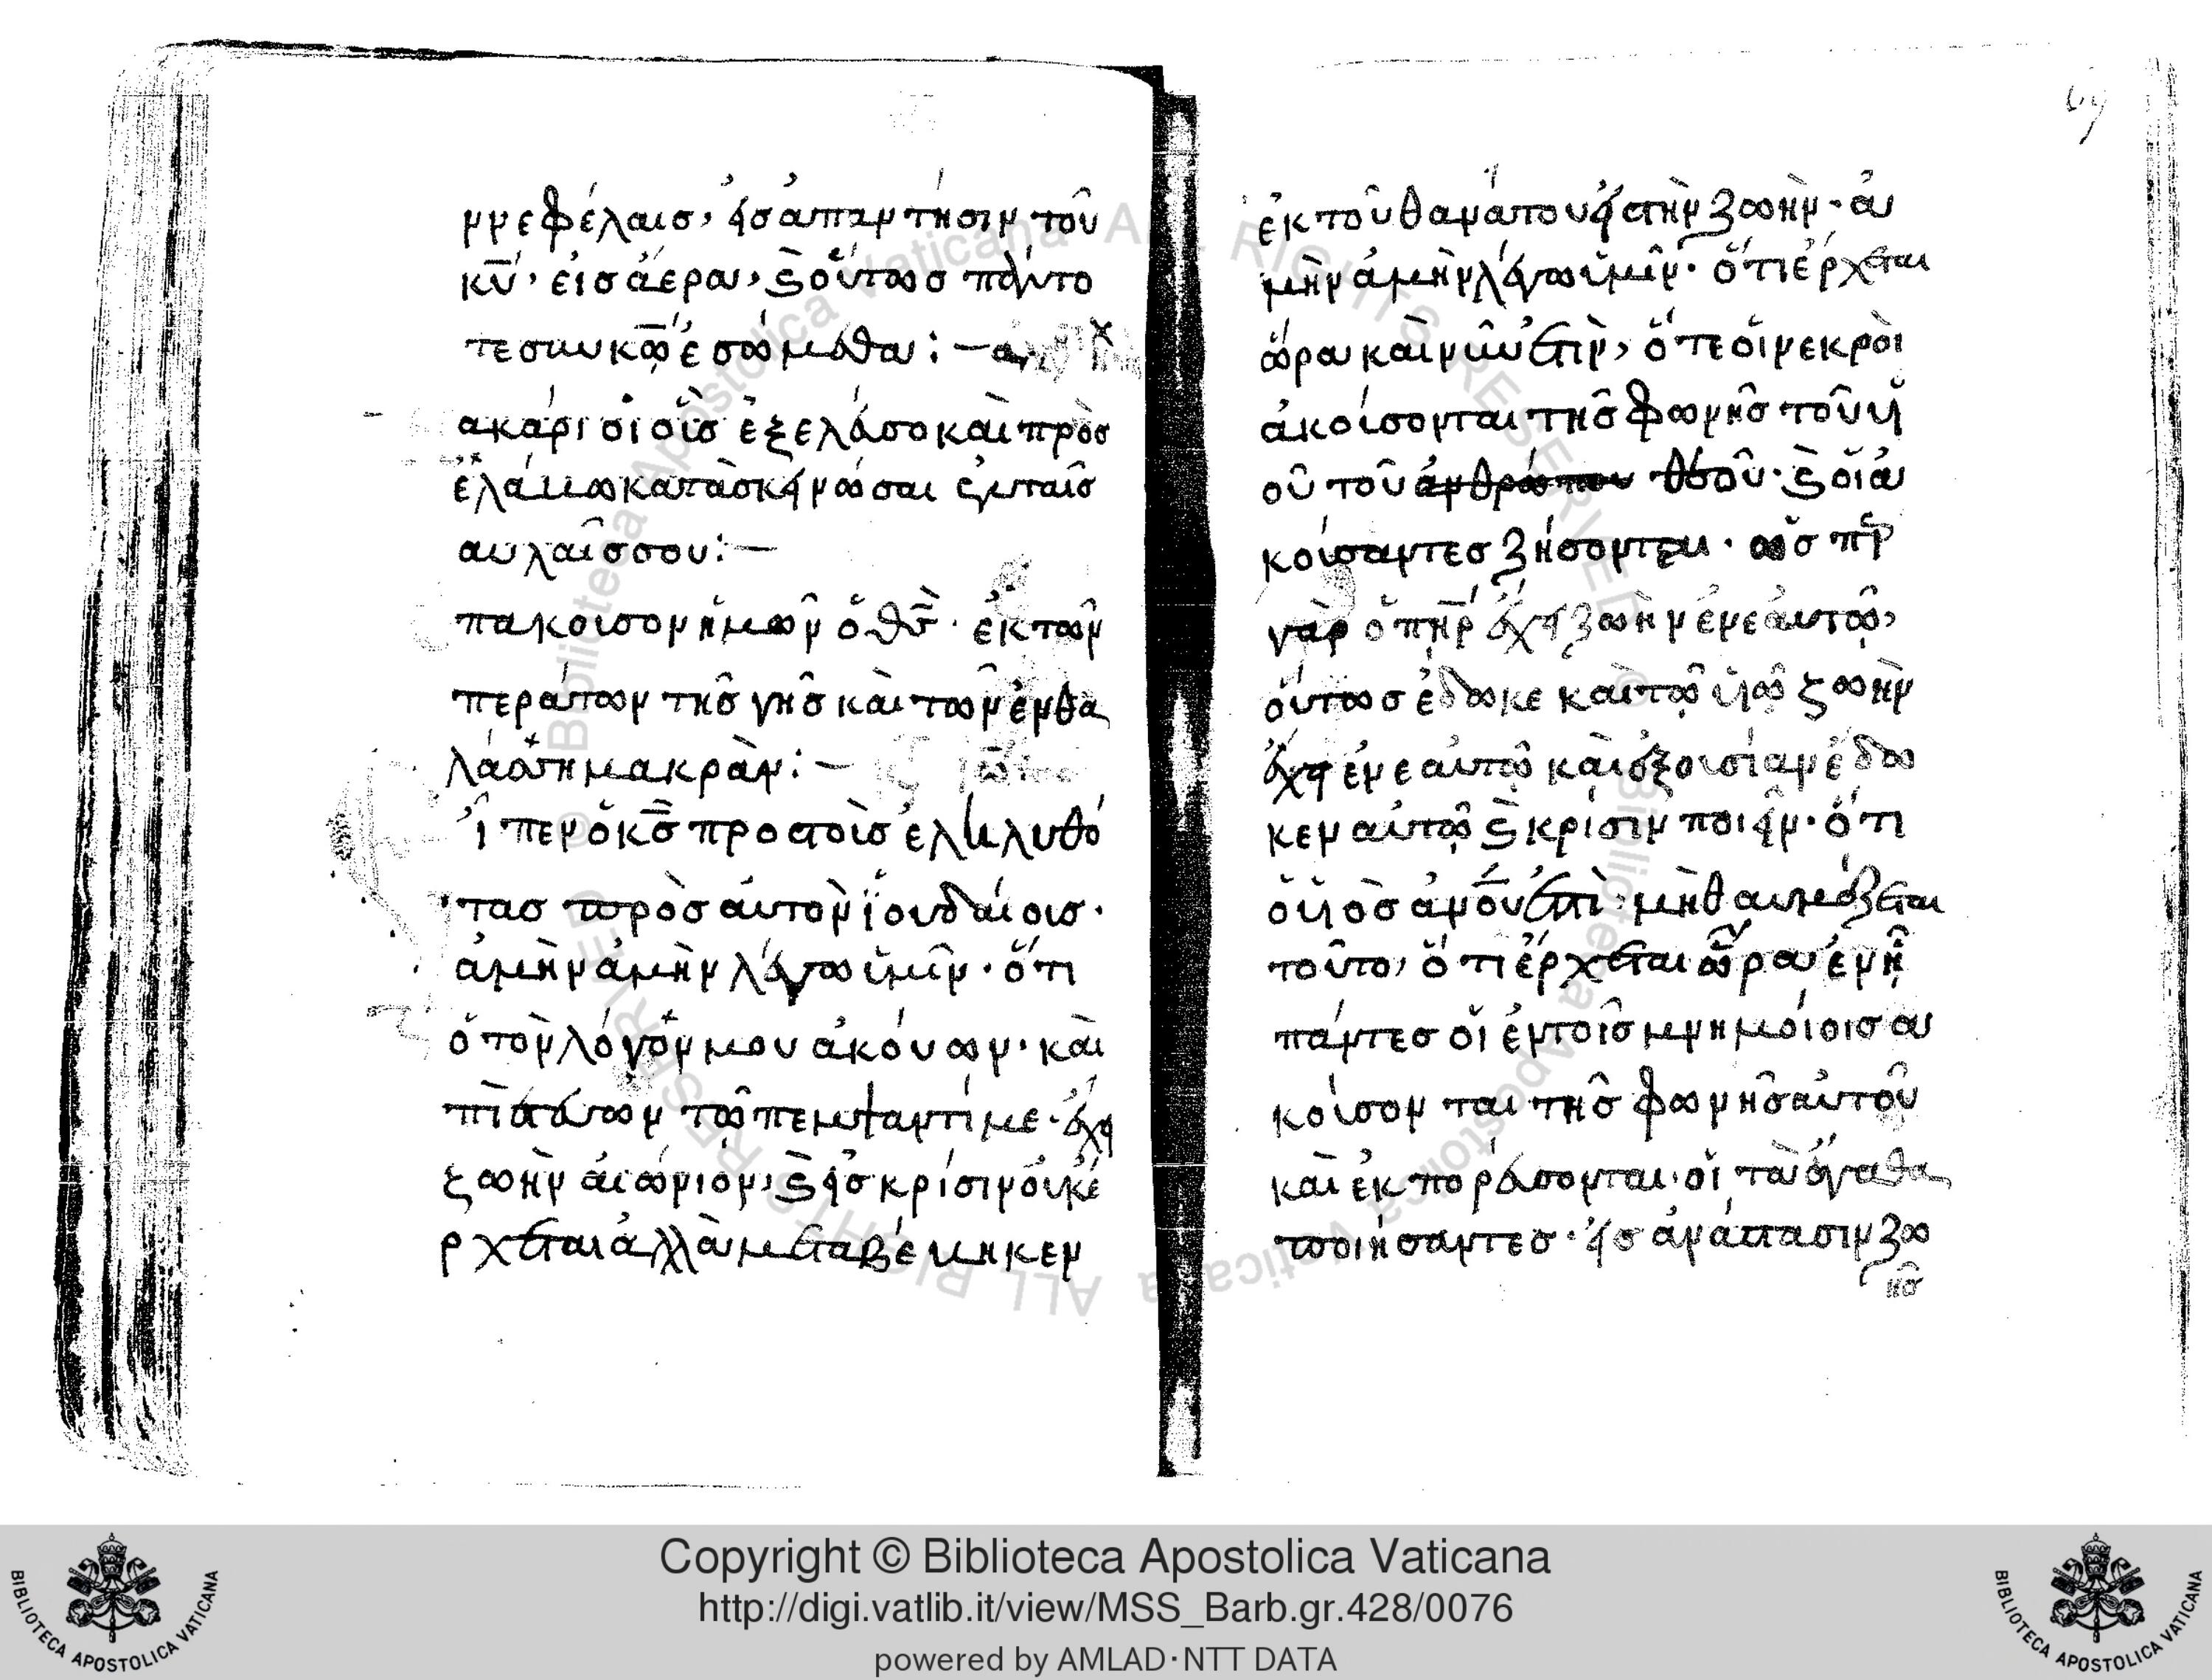 ννεφέλαισ, εἰσ ἀπαντησιν τοῦ
κῡ, εἰσ ἀέρα, κ οὕτωσ πάντο
τε συν κω ἐσώμεθα :—
ακάριοι οἳσ ἐξελέξο καὶ προσ
ελάμω κατασκήνώσαι ἐνταῖσ
αυλαῖσ σου:—
πακοισον ἡμῶν ὁ θσ. ἐκ τῶν
περάτων τησ γησ καὶ τῶν ἐν θα
λάσση μακρὰν:—
ῖπεν ὁ κσ προσ τοὶσ ἐληλυθό
τασ πρὸσ αὐτον ϊουδαίοισ.
ἀμὴν ἀμὴν λέγω ὑμῖν. ὅτι
ὁ τον λόγον μου ἀκόυων. καὶ
πιστέυων τῶ πεμψαντί με. ἔχει
ζωὴν αἰώνιον, κ εἰσ κρίσιν οὐκ έ
ρχεται ἀλλὰ μεταβέκηκεν
ἐκ τοῦ θανάτου εἰσ τὴν ζωὴν. ἀ
μὴν ἀμὴν λέγω ὑμῖν. ὅτι ἔρχεται
ὥρα καὶ νῦν ἐστιν, ὅτε οἱ νεκροὶ
ἀκοίσονται τησ φωνησ τοῦ υἱ
οῦ τοῦ ἀνθρώπου θεοῦ. κ οἱ ἀ
κοίσαντεσ ζήσονται. ωσ πρ
γὰρ ὁ πηρ ἔχει ζωὴν ἐνεαυτῶ,
οὕτωσ ἔδωκε καὶ τῶ υἱῶ ζωὴν
ἔχειν ἐνεαυτῶ καὶ ἐξοισίαν ἔδω
κεν αὐτῶ κ κρίσιν ποιεῖν. ὅτι
ὁ υἱὸσ ἀνου ἐστὶ. μὴ θαυμάζεται
τοῦτο, ὅτι ἔρχεται ὥρα ἐν ῇ
πάντεσ οἱ ἐν τοῖσ μνημοίοισ α
κοίσονται τησ φωνησ αὐτοῦ
καὶ ἐκπορέυσονται. οἱ τὰ ἀγαθα
ποιήσαντεσ. εἰσ ἀνάστασιν ζω
ησ
Copyright © Biblioteca Apostolica Vaticana
http://digi.vatlib.it/view/MSS_Barb.gr.428/0076
powered by AMLAD·NTT DATA
BIBLIOTECA APOSTOLICA VATICANA
BIBLIOTECA APOSTOLICA VATICANA